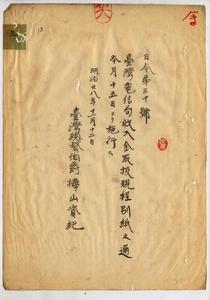 日令第三十號
臺灣電信局收入金取扱規程別紙之通
本月十五日ヨリ施行ス
明治廿八年十一月十二日
臺灣總督伯爵樺山資紀